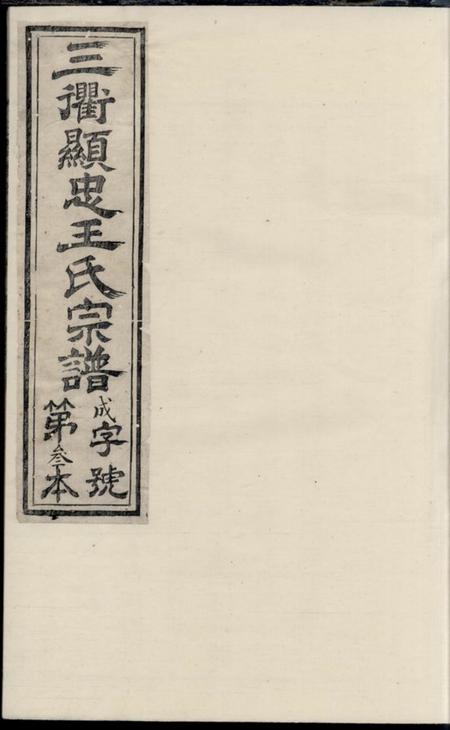 三衢顯忠王氏宗譜
成字號
第叁本